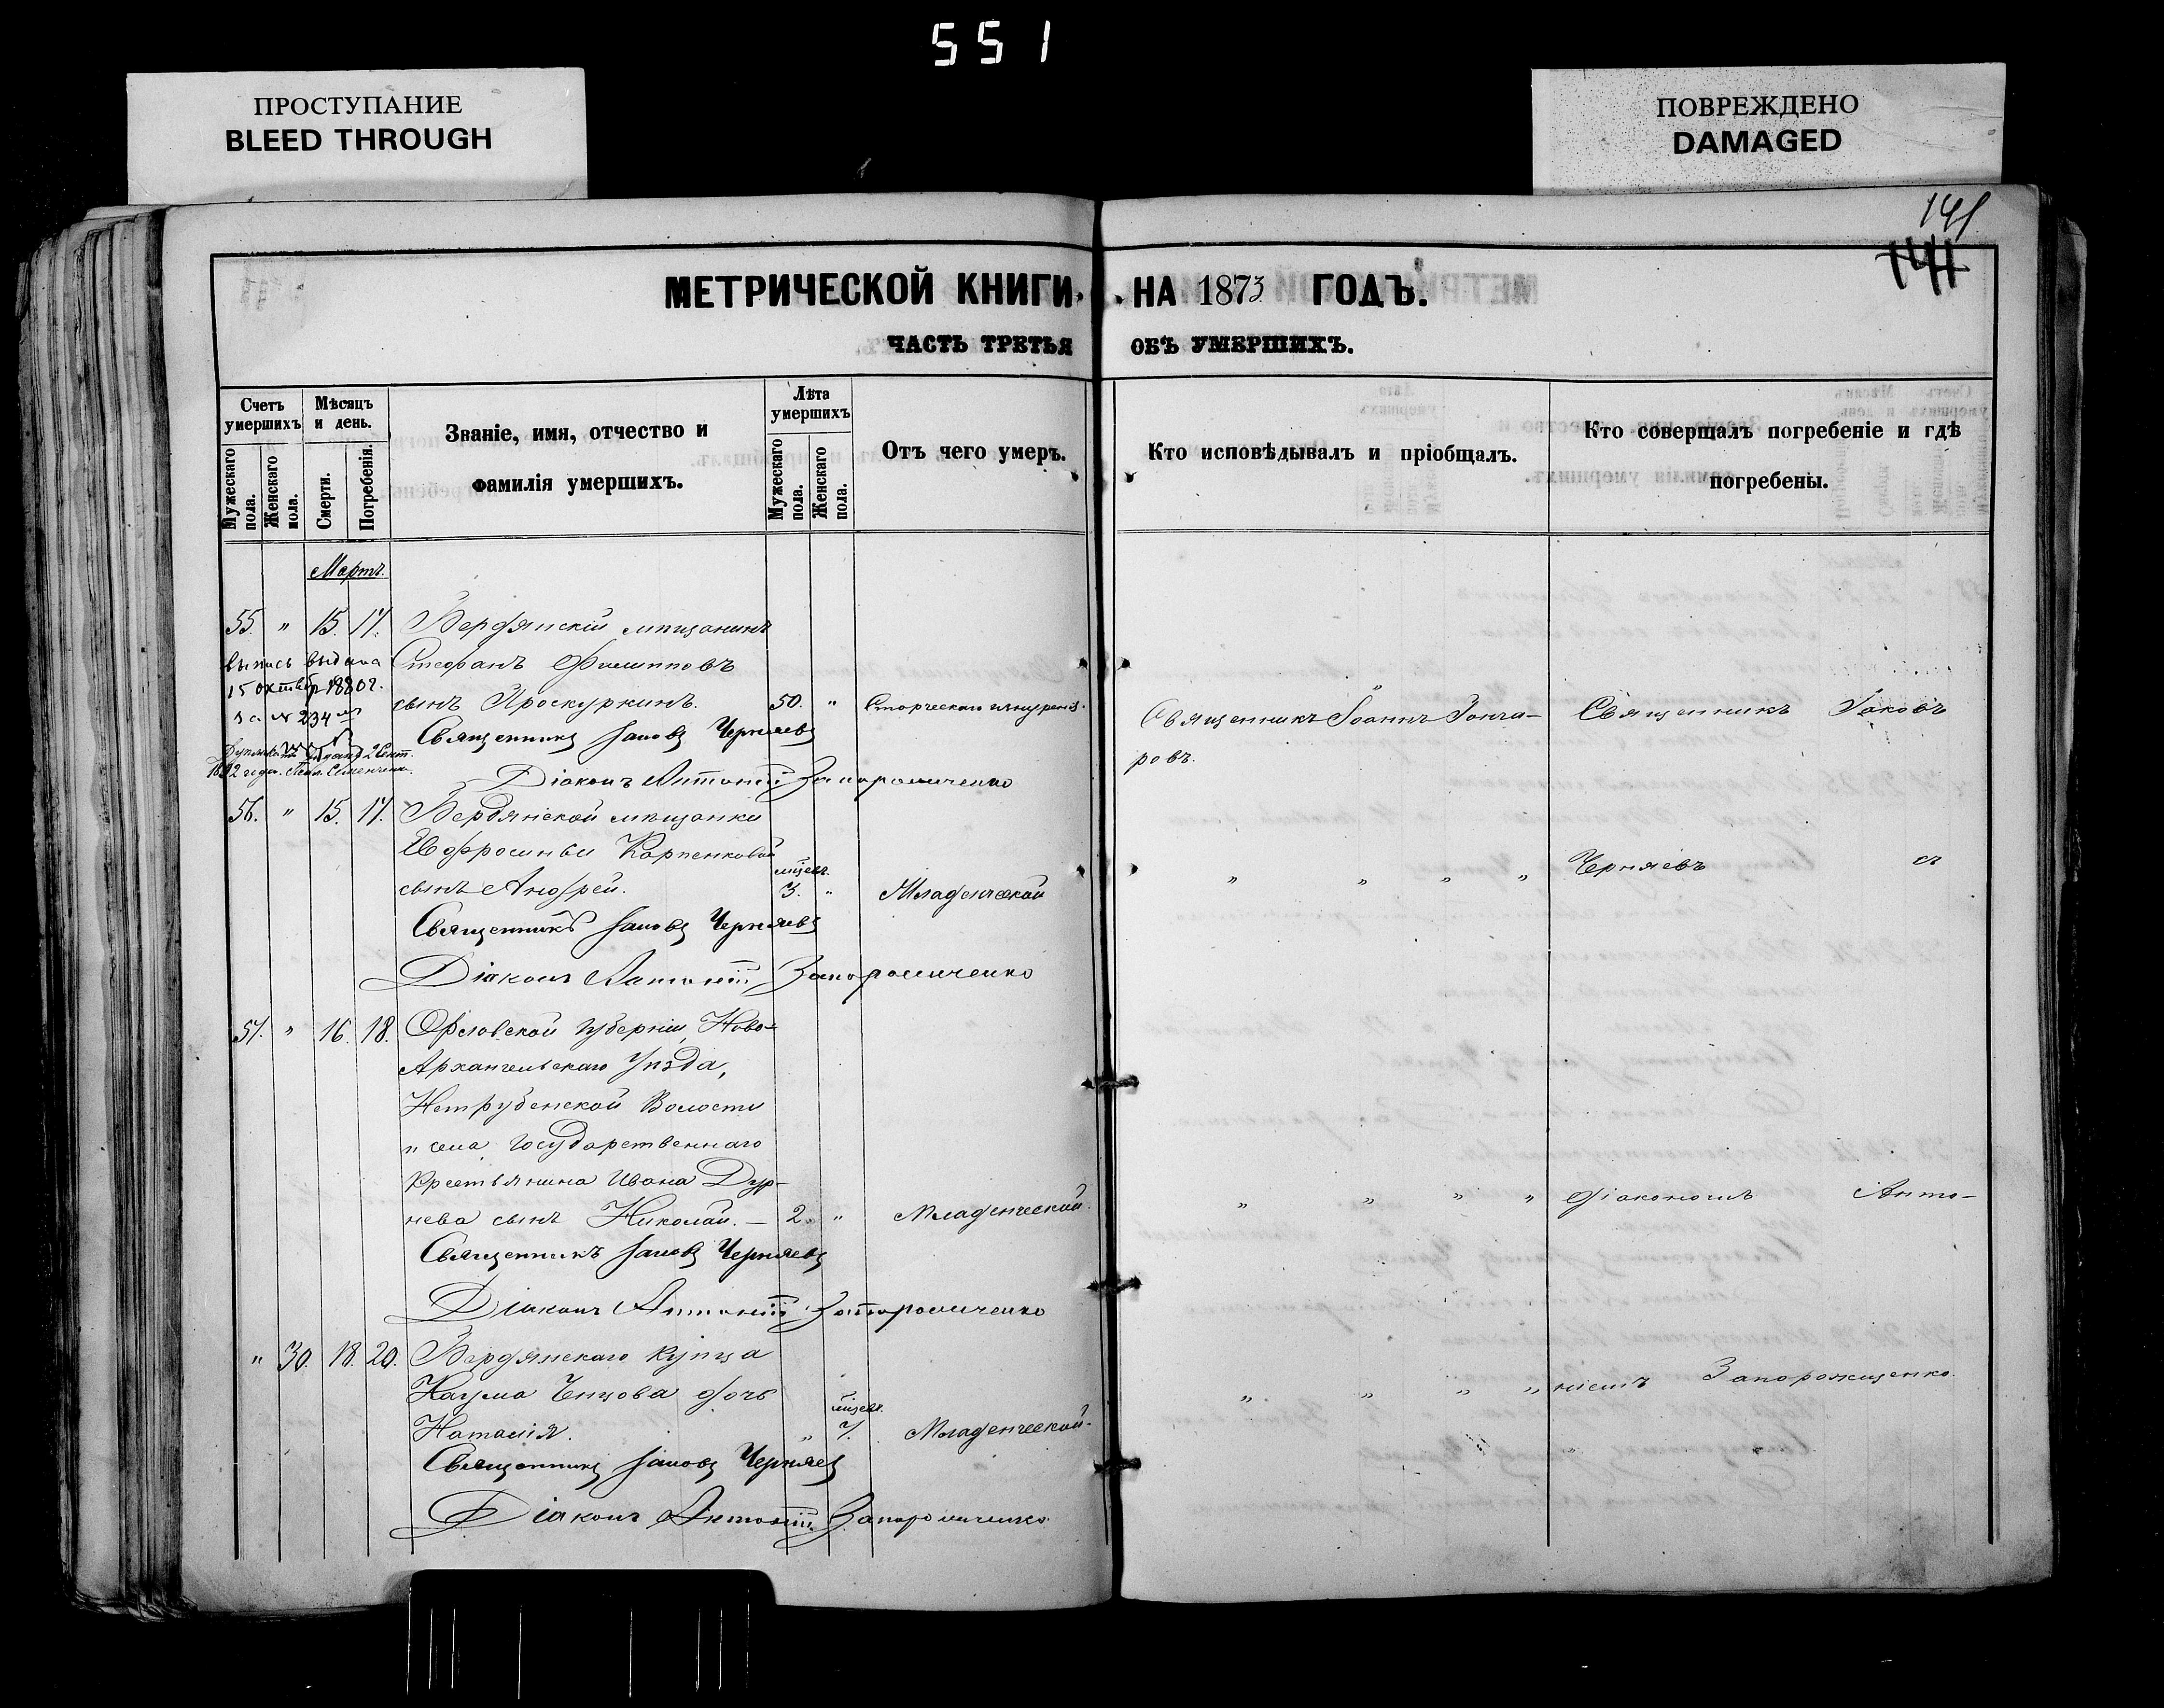 551
ПРОСТУПАНИЕ
BLEED THROUGH
ПОВРЕЖДЕНО
DAMAGED
141
МЕТРИЧЕСКОЙ КНИГИ НА 1873 ГОДЪ.
ЧАСТЬ ТРЕТЬЯ ОБЪ УМЕРШИХЪ.
Счетъ умершихъ
Мужескаго пола.
Женскаго пола.
Мѣсяцъ и день.
Смерти.
Погребенія.
Званіе, имя, отчество и
фамилія умершихъ.
Лѣта умершихъ
Мужескаго пола.
Женскаго пола.
Отъ чего умеръ.
Кто исповѣдывалъ и пріобщалъ.
Кто совершалъ погребеніе и гдѣ
погребены.
Мартъ.
55. " 15. 17. Бердянскій мѣщанинъ
Стефанъ Филипповъ
сынъ Проскуркинъ. 50. "
выпись выдана
15 октябр 1880 г.
за № 234
Священникъ Іоаннъ Гонча-
ровъ.
Священникъ Іаковъ
Священникъ Іаковъ Черняевъ
Діаконъ Антоній Запорожченко
56. " 15. 17. Бердянской мѣщанки
Евфросиньи Карпенковой
сынъ Андрей. мѣсев. 3. " Младенческой
" " " " Черняевъ съ
Священникъ Іаковъ Черняевъ
Діаконъ Антоній Запорожченко
57. " 16. 18. Орловской губерніи, Ново-
Архангельскаго Уѣзда,
Волости
и села, государственнаго
Крестьянина Ивана Дур-
нева сынъ Николай. — 2. " Младенческой.
" " " " діакономъ Анто-
Священникъ Іаковъ Черняевъ
Діаконъ Антоній Запорожченко
" 30. 18. 20. Бердянскаго купца
Наума дочь
Наталія. " мѣсев. 7. Младенческой.
" " " " ніемъ Запорожщенко.
Священникъ Іаковъ Черняев
Діаконъ Антоній Запорожченко